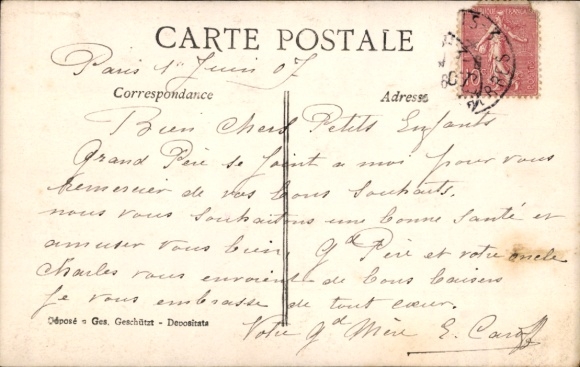 CARTE POSTALE
Paris 1er Juin 07
Correspondance
Adresse
Bien chers Petits Enfants
Grand Père se joint a moi pour vous
remercier de vos bons souhaits.
nous vous souhaitons une bonne santé et
amuser vous bien, Gd Père et votre oncle
Charles vous envoient de bons baisers
Je vous embrasse de tout cœur.
Votre Gd Mère E.
Déposé = Ges. Geschützt - Depositata